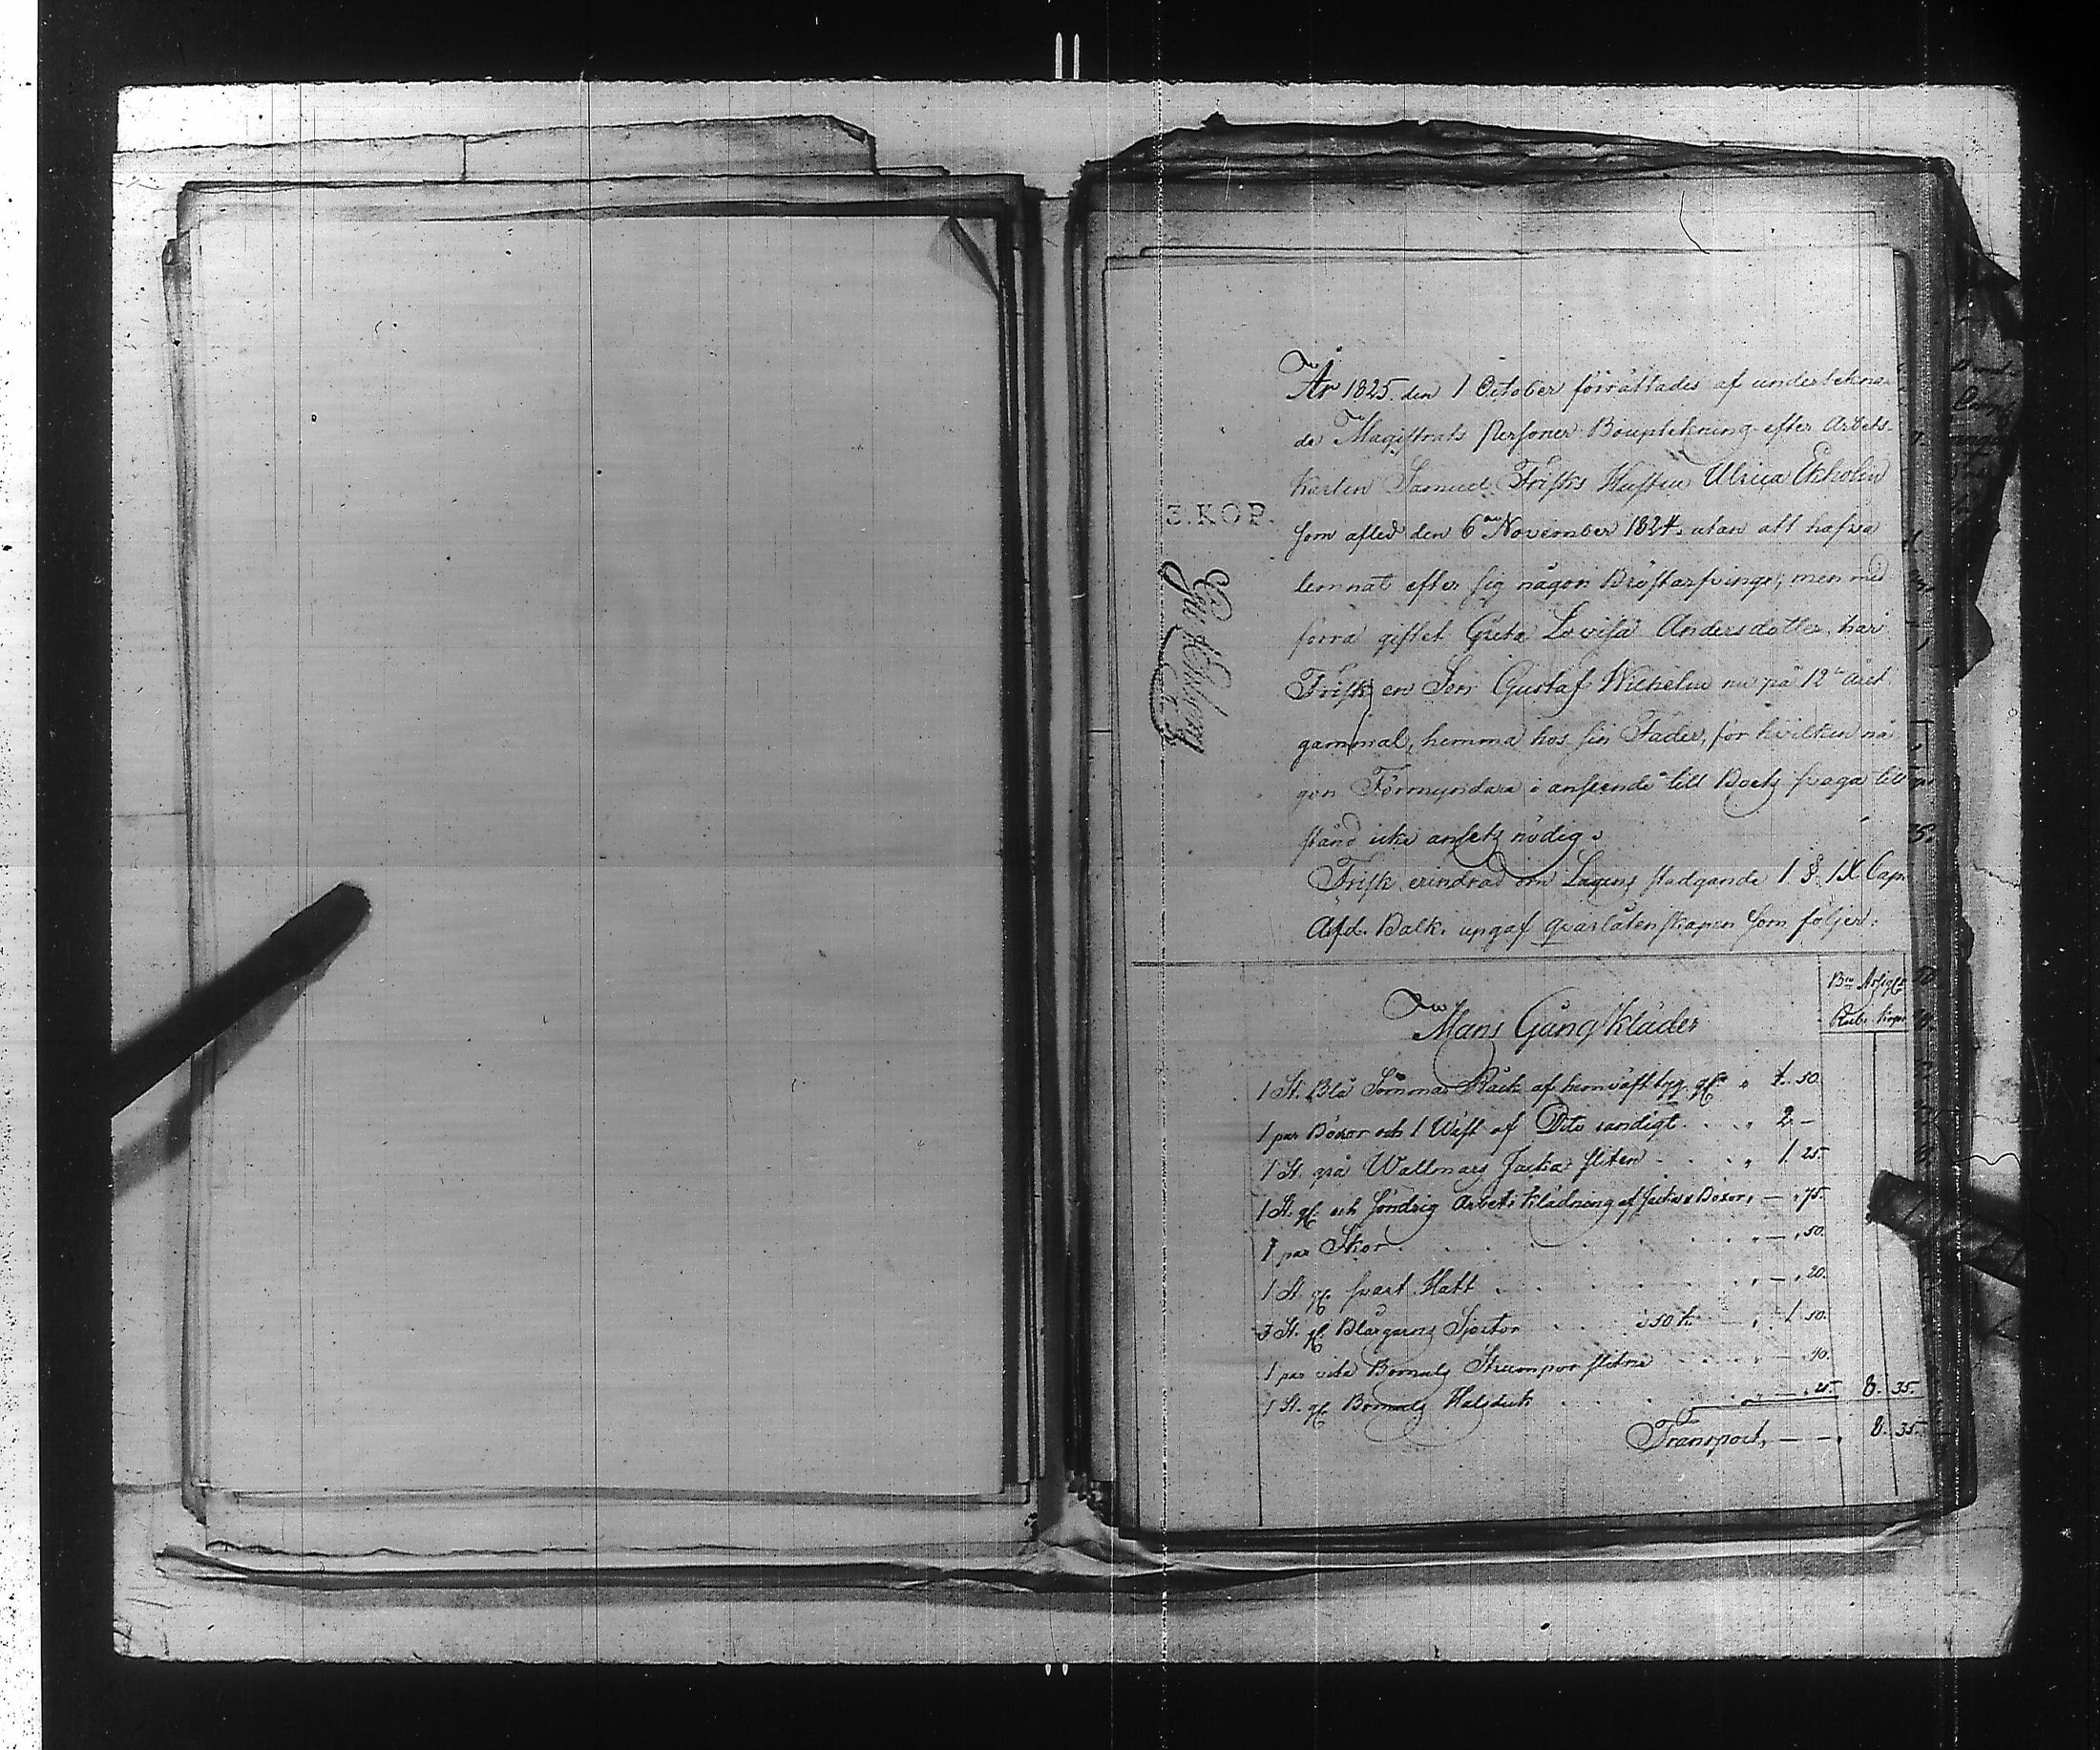 År 1825. den 1 October förrättades af underteckna-
de Magistrats Personer Bouptekning efter Arbets-
karlen Samuel Frisks Hustru Ulrica Ekholm
3. KOP.
som afled den 6te November 1824, utan att hafva
lemnat efter sig någon Bröstarfvinge, men med
förra giftet Greta Lovisa Andersdotter, har
Frisk en Son Gustaf Wilhelm nu på 12te året
gammal, hemma hos sin Fader, för hvilken nå-
gon Förmyndare i anseende till Boets svaga till-
stånd icke ansets nödig.
Frisk erindrad om Lagens stadgande 1. § IX Cap.
Ärfd. Balk. upgaf qvarlåtenskapen som följer:
Bco Assigt:
Rub. Kop.
Mans Gång Kläder
1 St. Blå Sommar Råck af hemväft tyg gl. " 1. 50.
1 par Böxor och 1 Wäst af Dito randigt . . " 2. –
1 St. grå Wallmars Jacka sliten . . . " 1. 25.
1 St. gl. och söndrig Arbets klädning af Jacka & Böxor, " – " 75.
1 par Skor . . . . . . " – " 50.
1 St. gl. svart Hatt . . . . . " – " 20.
3 St. gl. Blårgarns Sjortor . . . à 50 k. " 1. 50.
1 par vita Bomuls Strumpor slitna . . . " – " 40.
1 St. gl. Bomuls Halsduk . . . . " – " 25. 8. 35.
Transport, — — " 8. 35.